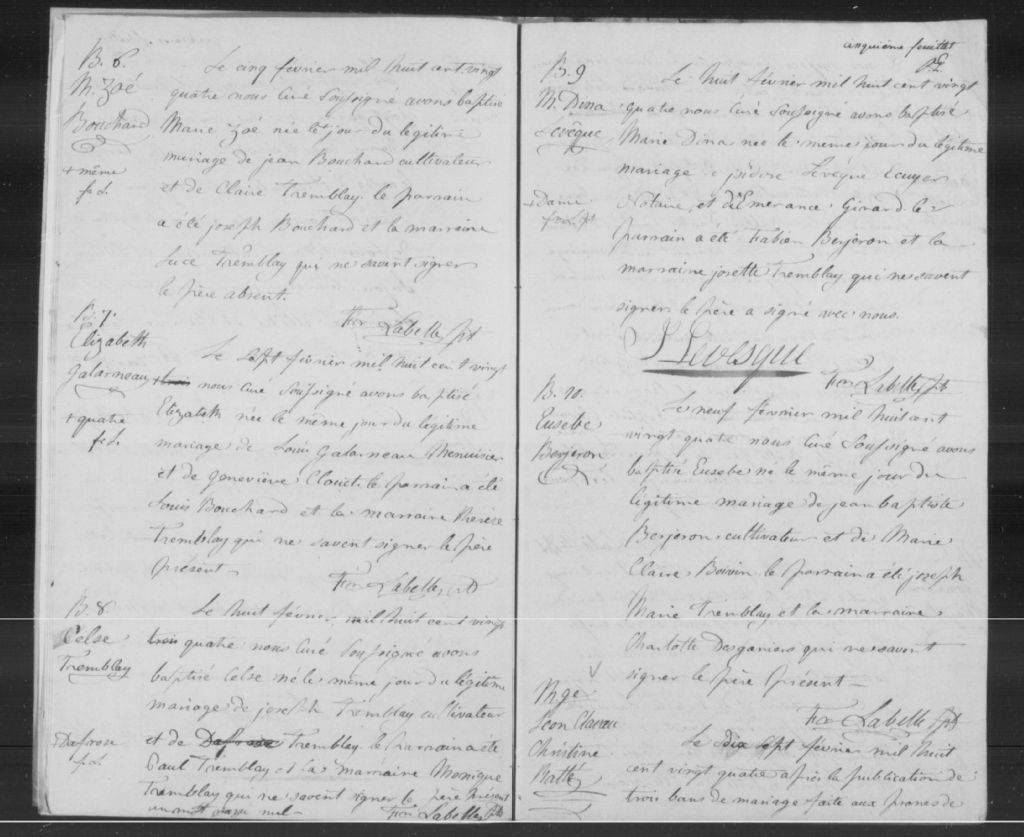 B. 6.
M. Zoé
Bouchard
+ même
f. L.
Le cinq février mil huit cent vingt
quatre nous Curé soussigné avons baptisé
Marie Zoé née le + jour du légitime
mariage de jean Bouchard cultivateur
et de Claire Tremblay. le parrain
a été joseph Bouchard et la marraine
Luce Tremblay qui ne savent signer
le père absent.
Labelle ptr
B. 7.
Elizabeth
Galarneau
+ quatre
f. L.
Le sept février mil huit cent vingt
+trois nous Curé soussigné avons baptisé
Elizabeth née le même jour du légitime
mariage de Louis Galarneau Menuisier
et de Geneviève Clouet. le parrain a été
Louis Bouchard et la marraine Thérèse
Tremblay qui ne savent signer le père
présent —
Labelle ptr
B. 8.
Celse
Tremblay
+ Dafrose
f. L.
Le huit février mil huit cent vingt
trois quatre nous Curé soussigné avons
baptisé Celse né le même jour du légitime
mariage de joseph Tremblay cultivateur
et de Dafrose Tremblay. le parrain a été
Paul Tremblay et la Marraine Monique
Tremblay qui ne savent signer le père présent
un mot rayé nul —
Labelle ptr
cinquième feuillet
B. 9
M. Dina
Levêque
+ Dame
Le huit février mil huit cent vingt
quatre nous Curé soussigné avons baptisé
Marie Dina née le même jour du légitime
mariage de isidore Levêque Ecuyer
Notaire, et d'+ Emerance Girard. le
parrain a été Fabien Berjeron et la
marraine josette Tremblay qui ne savent
signer le père a signé avec nous.
Levesque
Labelle ptr
B. 10.
Eusebe
Berjeron
Le neuf février mil huit cent
vingt quatre nous Curé soussigné avons
baptisé Eusebe né le même jour du
légitime mariage de jean baptiste
Berjeron cultivateur et de Marie
Claire Boivin. le parrain a été joseph
Marie Tremblay et la marraine
Charlotte Desganiers qui ne savent
signer le père présent —
Labelle ptr
Mge
Léon Claveau
Christine
Ratté
Le dix sept février mil huit
cent vingt quatre après la publication de
trois bans de mariage faite aux prones de